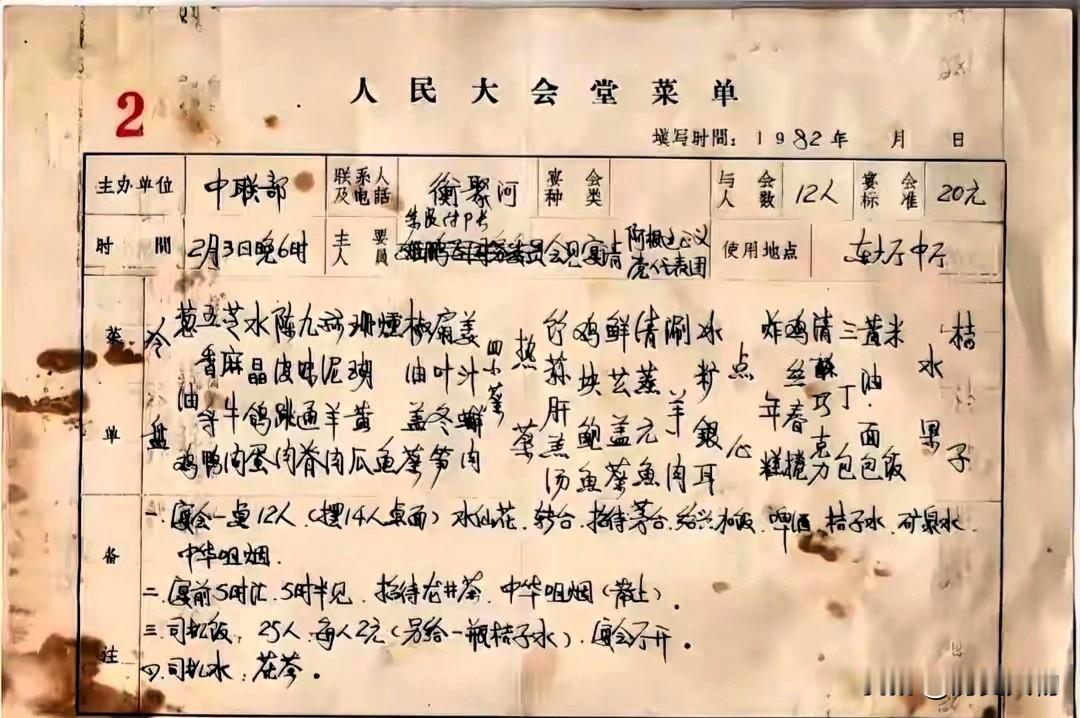 2
人民大会堂菜单
填写时間：1982年 月 日
主办单位 中联部 联系人及电话 衡聚河 宴会种类 与会人数 12人 宴会标准 20元
时間 2月3日晚6时 主要人員 会见宴请 阿根廷 党代表团 使用地点 东大厅中厅
菜单
冷盘
葱油鸡
五香鸭
芝麻牛肉
水晶鸽蛋
陈皮肉
九味通脊
泥羊肉
珊瑚黄瓜
燻鱼
椒油盖菜
叶冬笋
姜汁肉
四小菜
热菜
竹荪肝羔汤
鸡块鲍鱼
鲜盖菜
清蒸元鱼
涮羊肉
冰银耳
点心
炸年糕
鸡丝春捲
清酥巧克力
三丁包
黄油·面包
米饭
水果
桔子
备註
一．宴会一桌12人（摆14人桌面）水仙花．转台．招待茅台．绍兴．啤酒．桔子水．矿泉水．
中华咀烟．
二．宴前5时汇．5时半见．招待龙井茶．中华咀烟（散上）．
三．司机饭．25人．每人2元（另给一瓶桔子水）．宴会不开．
四．司机水：花茶．